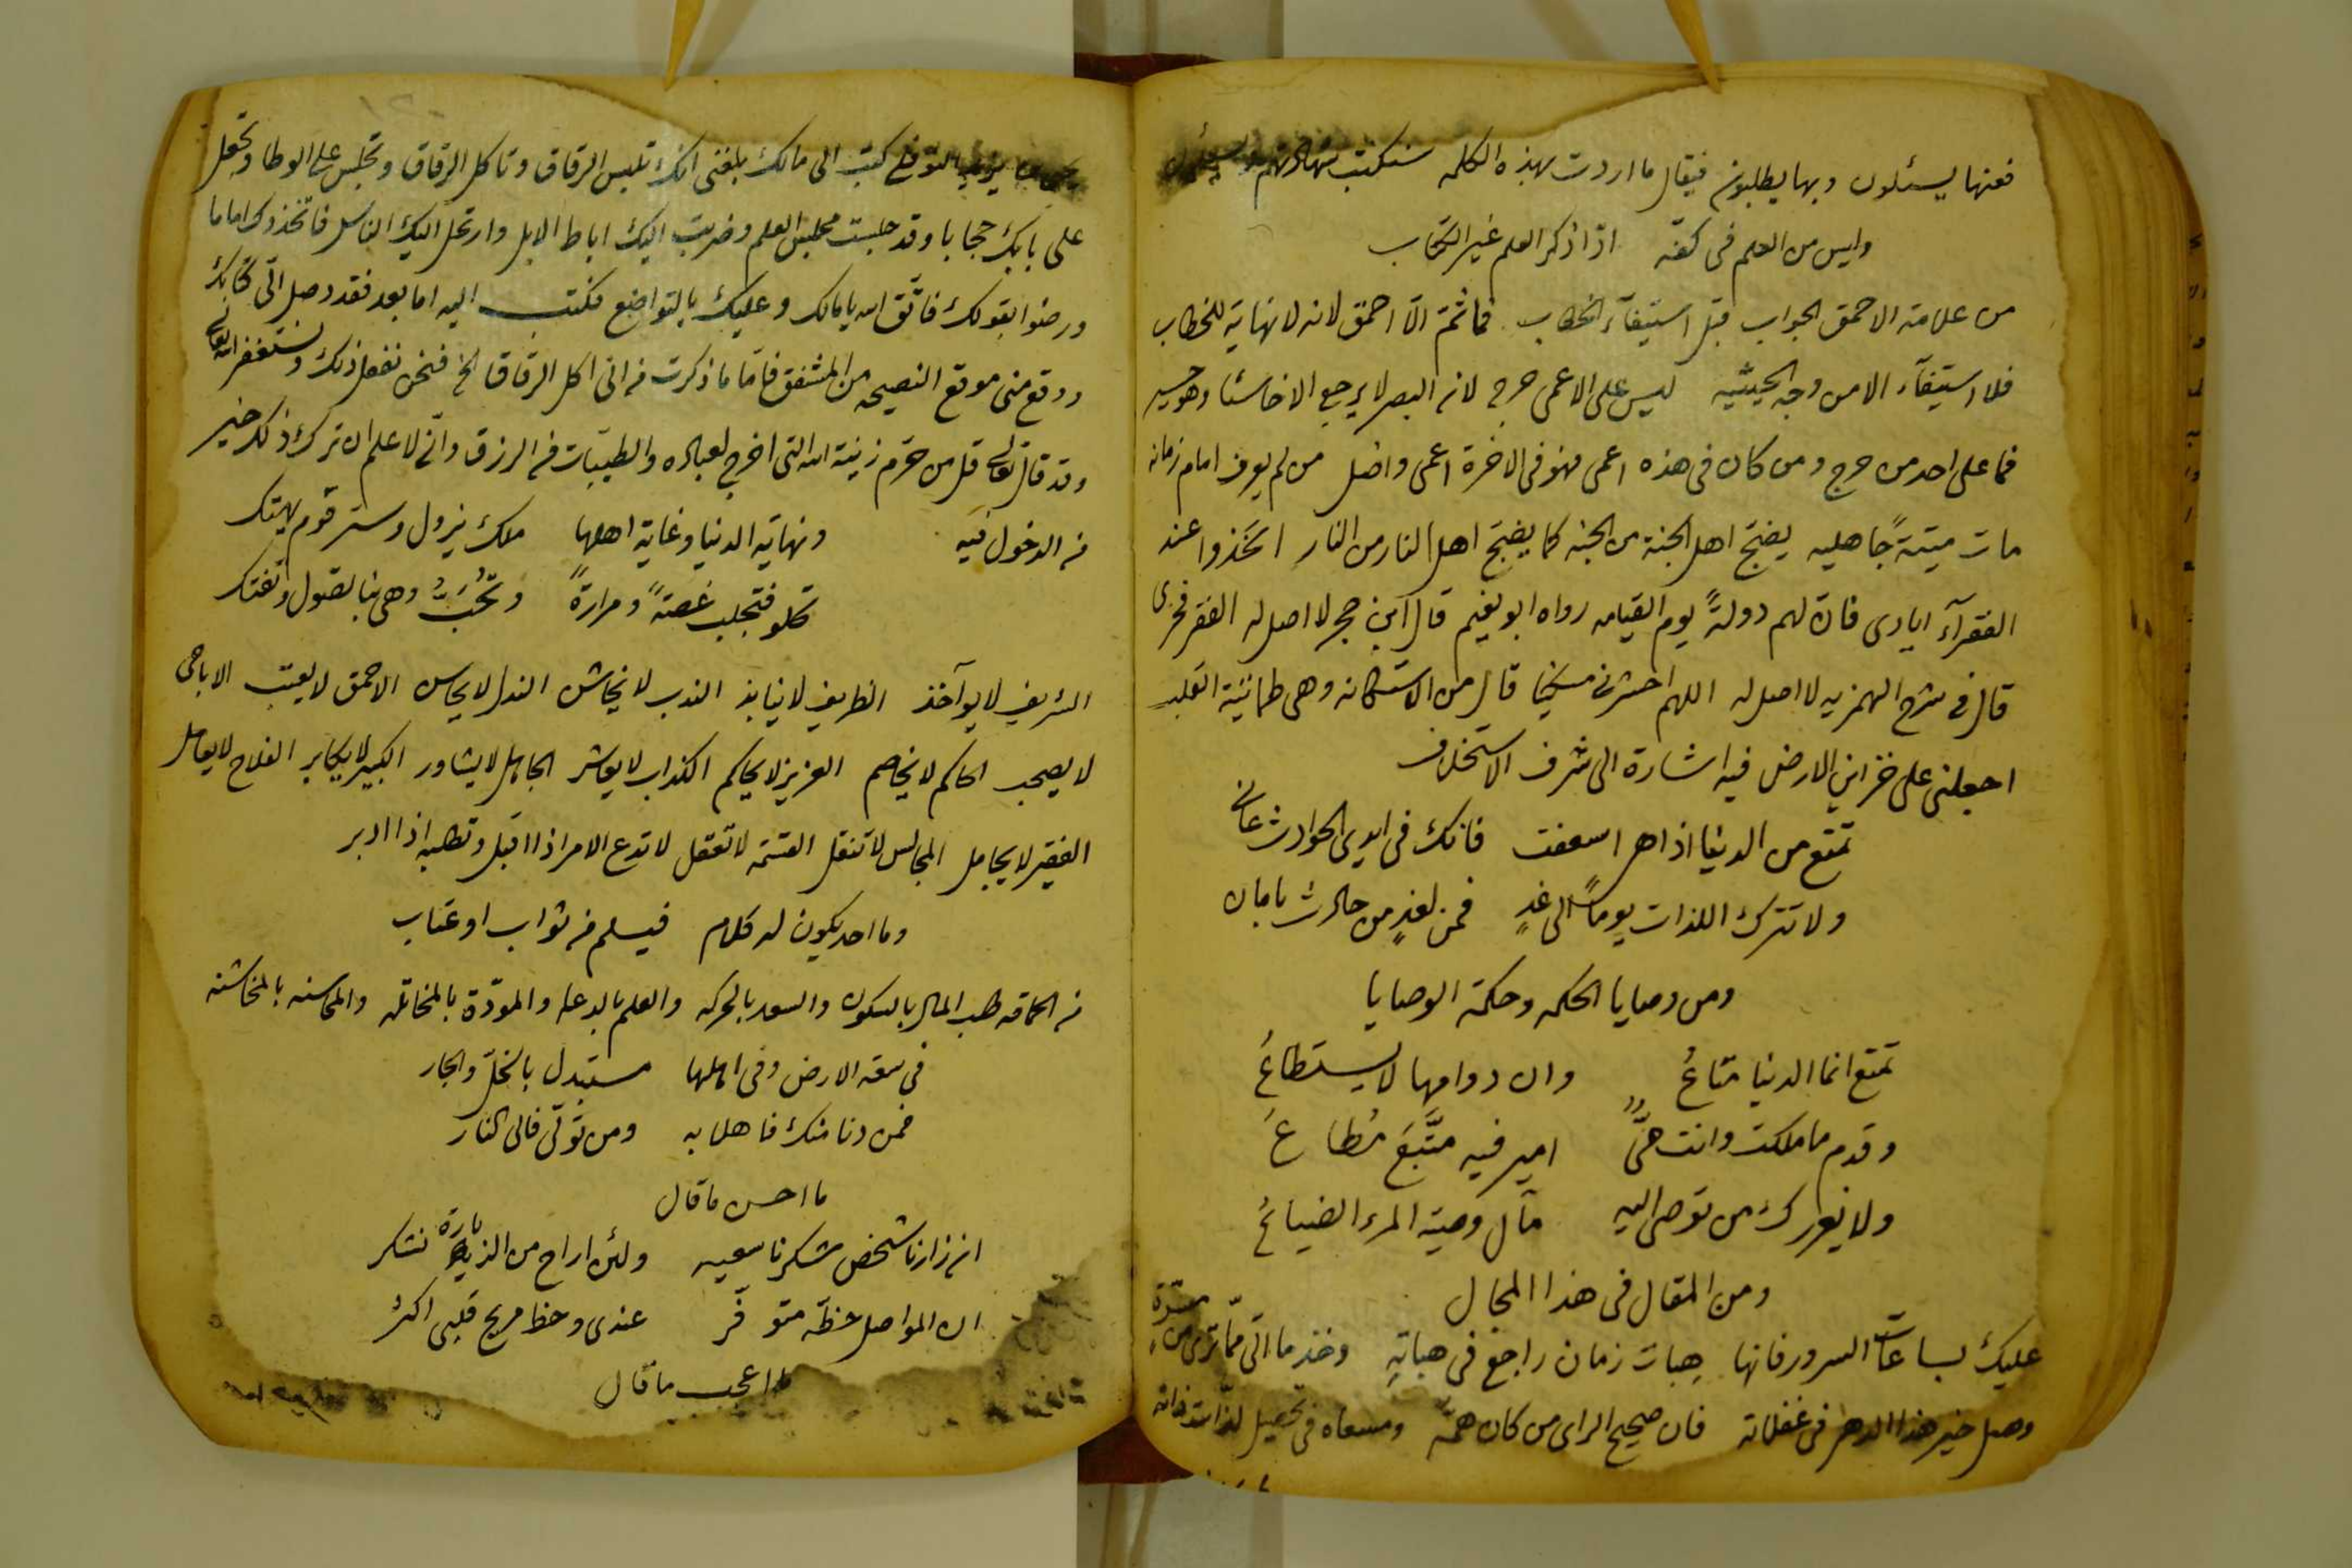 فعنها يسئلون وبها يطلبون فيقال ما اردت بهذه الكلمه ستكتب شهادتهم ويسئلون
وليس من العلم فى كفّه اذا ذكر العلم غير الكتاب
من علامة الاحمق الجواب قبل استيفآء الخطاب فما ثمّ الّا احمق لانه لا نهاية للخطاب
فلا استيفآء الا من وجه الحيثيه ليس على الاعمى حرج لان البصر لا يرجع الا خاسئا وهو حسير
فما على احد من حرج ومن كان فى هذه اعمى فهو فى الاخرة اعمى واضل من لم يعرف امام زمانه
مات ميتةً جاهليه يضجّ اهل الجنة من الجنه كما يضجّ اهل النار من النار اتخذوا عند
الفقرآء ايادى فان لهم دولةً يوم القيامه رواه ابو نعيم قال ابن حجر لا اصل له الفقر فخرى
قال فى شرح الهمزيه لا اصل له اللهم احشرنى مسكينا قال من الاستكانه وهى طمانينة القلب
اجعلنى على خزاين الارض فيه اشارة الى شرف الاستخلاف
تمتّع من الدنيا اذا هى اسعفت فانك فى ايدى الحوادث عانى
ولا تترك اللذات يوماً الى غدٍ فمن لغدٍ من حادث بامان
ومن وصايا الحكمه وحكمة الوصايا
تمتع انما الدنيا متاعُ وان دوامها لا يستطاعُ
وقدم ما ملكت وانت حىٌّ امير فيه متّبَع مُطاعُ
ولا يغررك من توصى اليه مآل وصية المرء الضياعُ
ومن المقال فى هذا المجال
عليك بساعات السرور فانها هِبات زمان راجع فى هباتهِ وخذ ما اتى ممّا ترى من مسرّة
وهل خير هذا الدهر فى غفلاته فان صحيح الراى من كان همّه ومسعاه فى تحصيل لذّات ذاته
كتب الى مالك بلغنى انك تلبس الرقاق وتاكل الرقاق وتجلس على الوطا وتجعل
على بابك حجابا وقد جلست مجلس العلم وضربت اليك اباط الابل وارتحل اليك الناس فاتخذوك اماما
ورضوا بقولك فاتّق الله يا مالك وعليك بالتواضع فكتب اليه اما بعد فقد وصل الىّ كتابك
ووقع منى موقع النصيحه من المشفق فامّا ما ذكرت من انى اكل الرقاق الخ فنحن نفعل ذلك ونستغفر الله تعالى
وقد قال تعالى قل من حرّم زينة الله التى اخرج لعباده والطيبات من الرزق وانى لاعلم ان ترك ذلك خير
من الدخول فيه ونهاية الدنيا وغاية اهلها ملك يزول وستر قوم يهتك
تحلو فتجلب غصةً ومرارةً وتُحَبُّ وهى بنا تصول وتفتك
الشريف لا يوآخذ الظريف لا ينابذ الندب لا يخاشن النذل لا يحاسن الاحمق لا يعتب الاباحى
لا يصحب الحاكم لا يخاصم العزيز لا يحاكم الكذاب لا يعاشر الجاهل لا يشاور الكبير لا يكابر الفلاح لا يعامل
الفقير لا يجامل المجالس لا تنقل القسمة لا تعقل لا تدع الامر اذا اقبل وتطلبه اذا ادبر
وما احد يكون له كلام فيسلم من ثواب او عتاب
من الحماقه طلب المال بالسكون والسعد بالحركه والعلم بالدعاء والمودّة بالمخاتله والمحاسنه بالمخاشنه
فى سعة الارض وفى اهلها مستبدل بالخلّ والجار
فمن دنا منك فاهلا به ومن تولّى فالى النار
ما احسن ما قال
ان زارنا شخص شكرنا سعيه ولئن اراح من الزيارة نشكر
ان المواصل حظّه متوفّر عندى وحظ مريح قلبى اكثرُ
ما اعجب ما قال